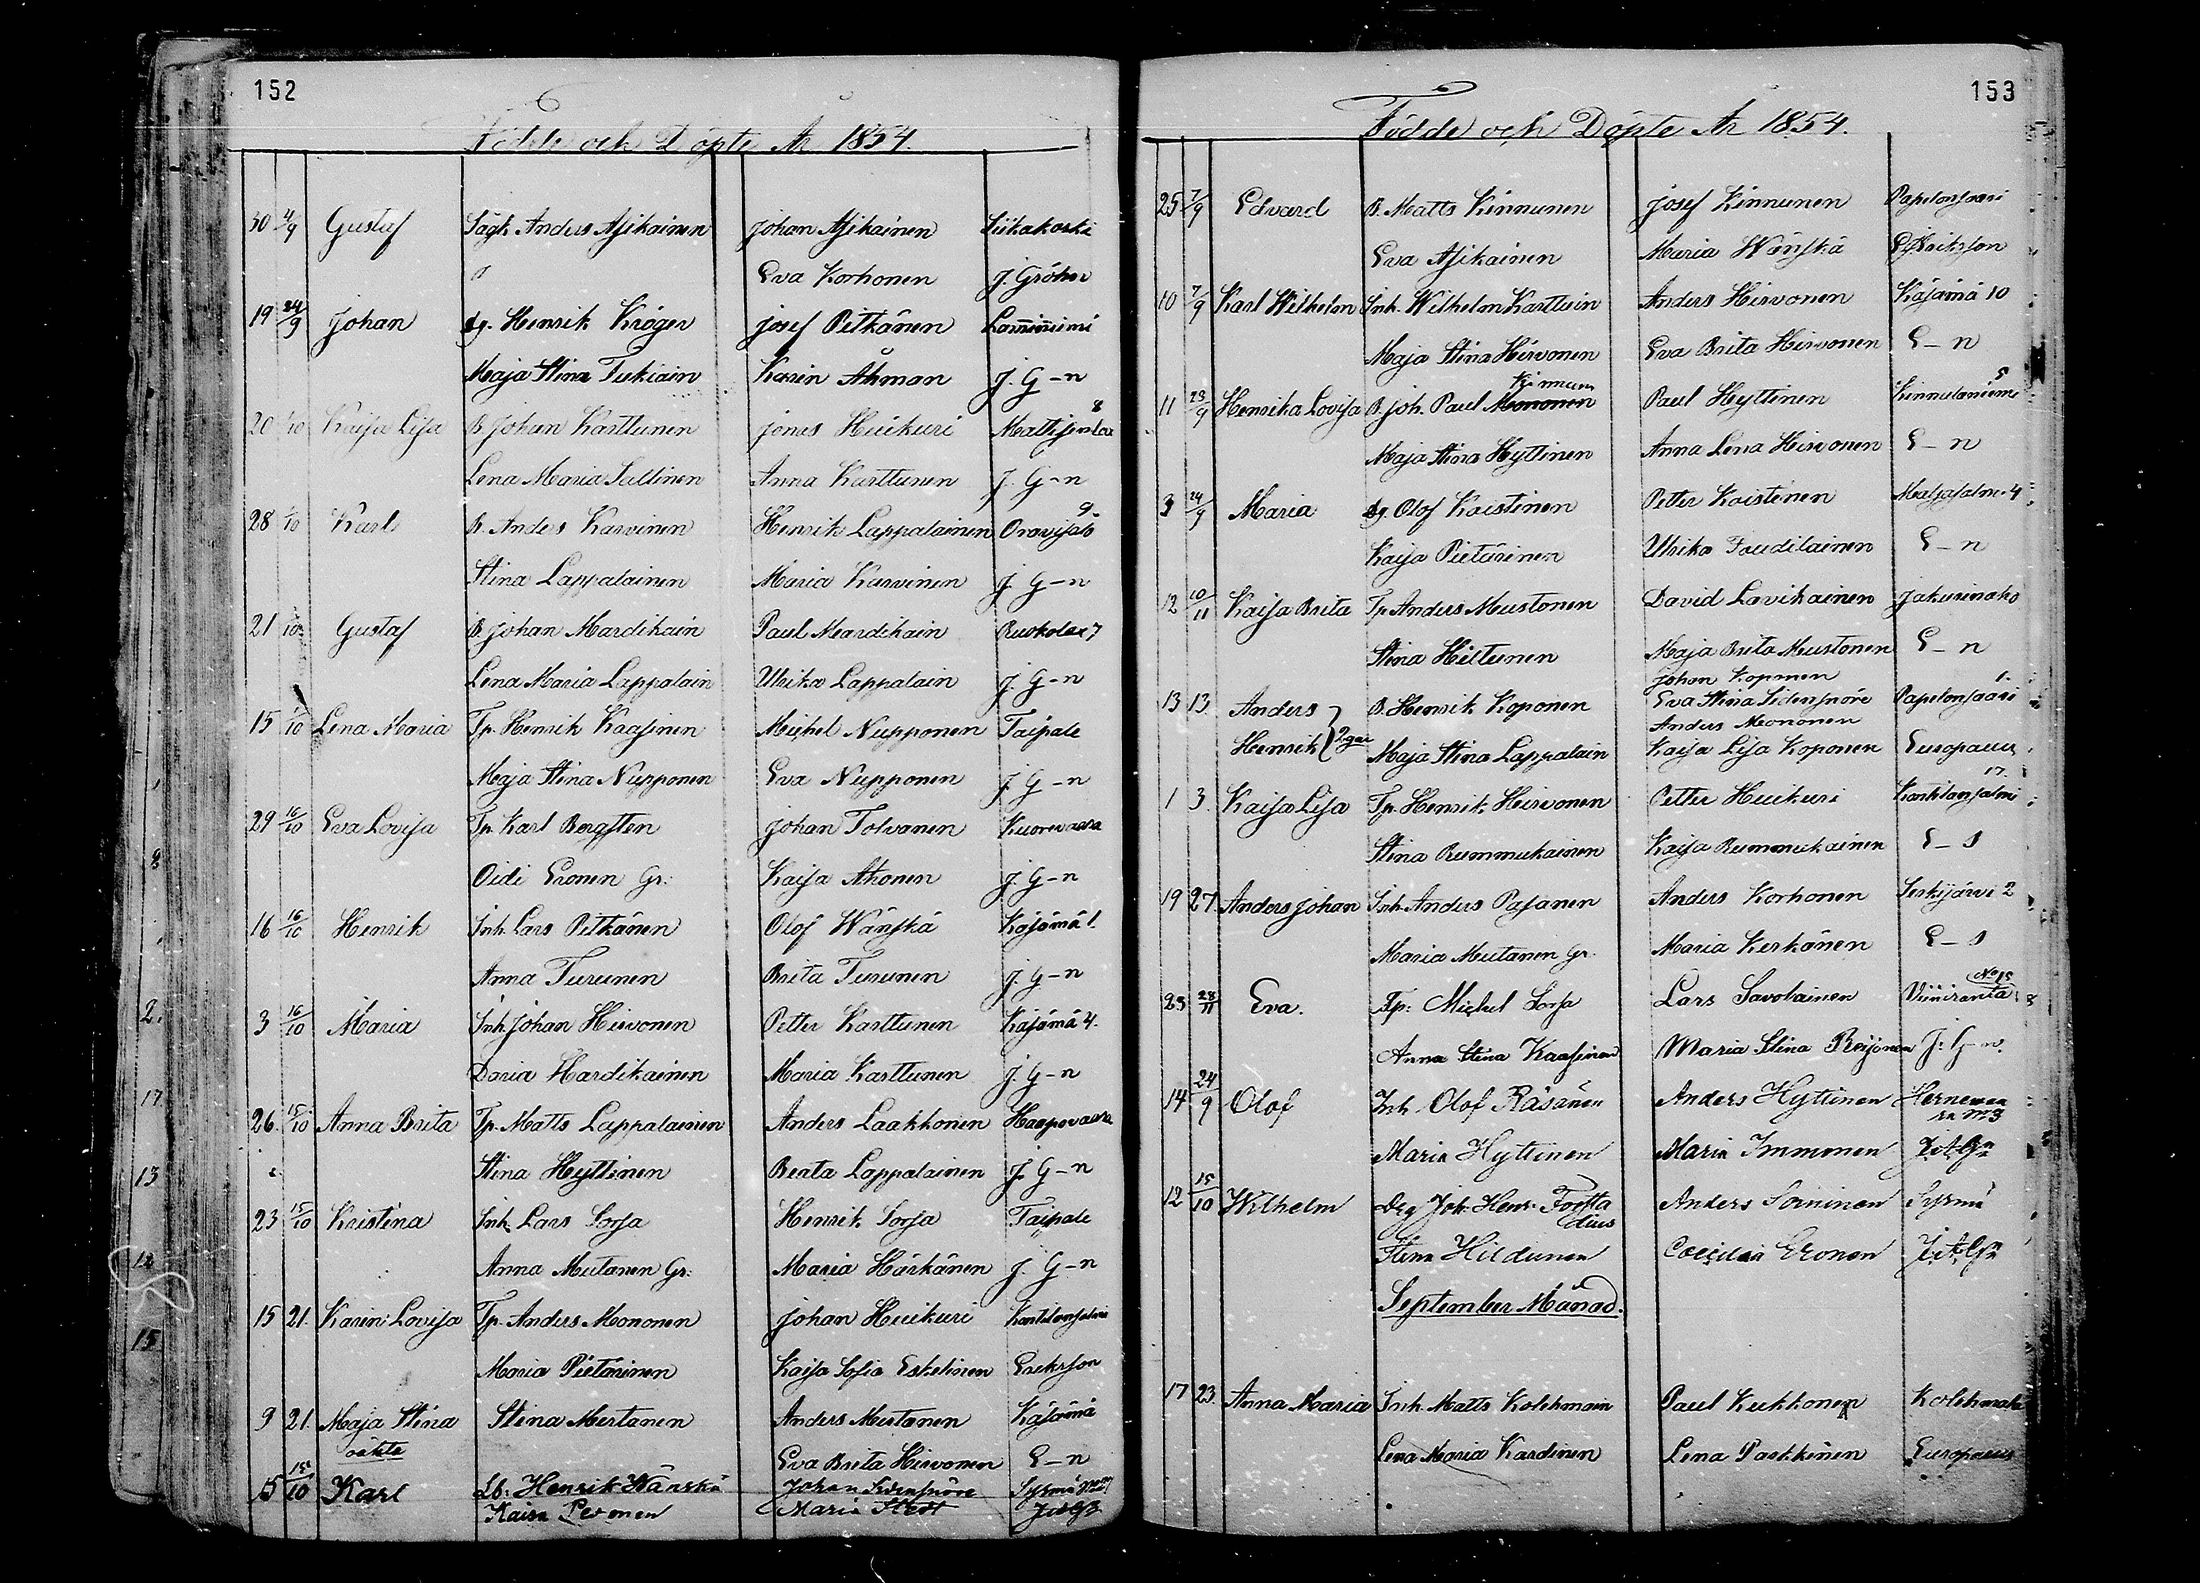 152
Födde och Döpte År 1854.
30 4/9 Gustaf Sågk. Anders Asikainen Johan Asikainen Siikakoski
Eva Korhonen J. Gröhn
19 24/9 Johan dg. Henrik Kröger Josef Pitkänen Lamminniemi
Maja Stina Tukiain Karin Åhman J. G-n
20 /10 Kaisa Lisa B. Johan Karttunen Jonas Huikuri 8
Lena Maria Anna Karttunen J. G-n
28 /10 Karl B. Anders Karvinen Henrik Lappalainen Oravisalo 9.
Stina Lappalainen Maria Karvinen J. G-n
21 /10 Gustaf B. Johan Mardikain Paul Mardikain Ruokolax 7
Lena Maria Lappalain Ulrika Lappalain J. G-n
15 /10 Lena Maria Tp. Henrik Kaasinen Michel Nupponen Taipale
Maja Stina Nupponen Eva Nupponen J. G-n
29 16/10 Eva Lovisa Tp. Karl Bergsten Johan Tolvanen Kuorevaara
Oidi Eronen Gr: Kaisa Ahonen J. G-n
16 16/10 Henrik Inh. Lars Pitkänen Olof Wänskä Käsämä 1.
Anna Turunen Brita Turunen J. G-n
3 16/10 Maria Inh. Johan Hirvonen Petter Karttunen Käsämä 4.
Daria Hardikainen Maria Karttunen J. G-n
26. 15/10 Anna Brita Tp. Matts Lappalainen Anders Laakkonen Haapovaara
Stina Hyttinen Beata Lappalainen J. G-n
23 15/10 Kristina Inh. Lars Sorsa Henrik Sorsa Taipale
Anna Mutanen Gr: Maria Härkänen J. G-n
15 21. Karin Lovisa Tp. Anders Mononen Johan Huikuri Karhilansalmi
Maria Pietarinen Kaisa Sofia Eskelinen Eriksson
9 21. Maja Stina Stina Mertanen Anders Mertanen Käsämä
oäkta Eva Brita Hirvonen E-n
15 15/10 Karl Lb: Henrik Wänskä Johan Sidensnöre Sysmä
Kaisa Maria
2.
17
13
15
153
Födde och Döpte År 1854.
25 7/9 Edvard B. Matts Kinnunen Josef Kinnunen Papelonsaari
Eva Asikainen Maria Wänskä Eriksson
10 7/9 Karl Wilhelm Inh. Wilhelm Karttuin Anders Hirvonen Käsämä 10
Maja Stina Hirvonen Eva Brita Hirvonen E-n
Kinnunen
11 23/9 Henrika Lovisa B. Joh. Paul Mononen Paul Hyttinen Kinnulaniemi 5
Maja Stina Hyttinen Anna Lena Hirvonen E-n
3 24/9 Maria dg. Olof Kaistinen Petter Kaistinen 4
Kaisa Pietarinen Ulrika E-n
12 10/11 Kaisa Brita Tp. Anders Mustonen David Lavikainen Jakunaho
Stina Hiltunen Maja Brita Mustonen E-n
Johan Koponen
13 13. Anders B. Henrik Koponen Eva Stina Sidensnöre Papelonsaari 1.
Anders Mononen
Henrik Maja Stina Lappalain Kaisa Lisa Koponen Europaeus
1 3. Kaisa Lisa Tp. Henrik Hirvonen Petter Huikuri Karhilansalmi 17.
Stina Rummukainen Kaisa Rummukainen E-s
19 27. Anders Johan Inh. Anders Pasanen Anders Korhonen Seskijärvi 2
Maria Mutanen Gr. Maria Kerkänen E-s
23 28/11 Eva. Tp: Michel Sorsa Lars Savolainen Viiniranta No 15
Anna Stina Kaasinen Maria Stina Reijonen J: G-n.
14 24/9 Olof Inh. Olof Räsänen Anders Hyttinen Hernevaara
Maria Hyttinen Maria Immonen
12 15/10 Wilhelm Drg Joh. Henr. Forstadius Anders Sorninen Sysmä
Stina Hildunen Coecilia Eronen
September Månad.
17 23. Anna Maria Inh. Matts Kolehmain Paul Kukkonen
Lena Maria Kardinen Lena Parkkinen Europaeus